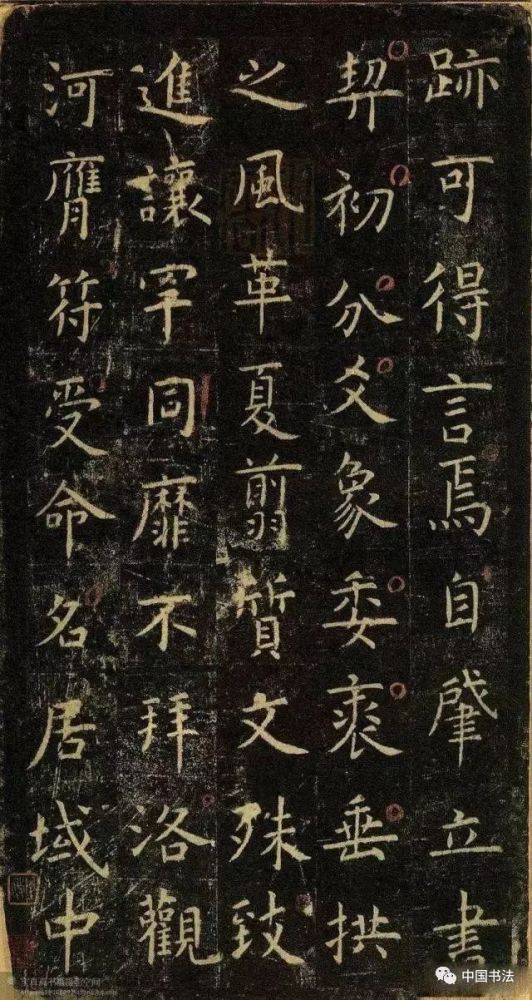 跡可得言焉自肈立書
契初分爻象委裘垂拱
之風革夏翦質文殊致
進讓罕同靡不拜洛觀
河膺符受命名居域中
中国书法